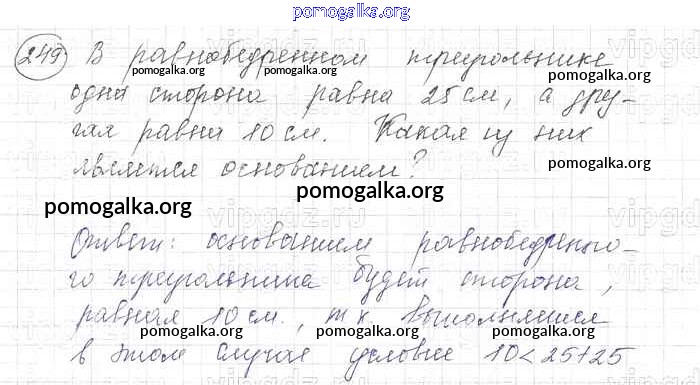 pomogalka.org
249 В равнобедренном треугольнике
pomogalka.org pomogalka.org pomogalka.org
одна сторона равна 25 см, а дру-
гая равна 10 см. Какая из них
pomogalka.org pomogalka.org
является основанием?
pomogalka.org
pomogalka.org
vipgdz.ru
Ответ: основанием равнобедренно-
го треугольника будет сторона,
равная 10 см., т к выполняется
pomogalka.org pomogalka.org pomogalka.org
в этом случае условие 10 < 25 + 25